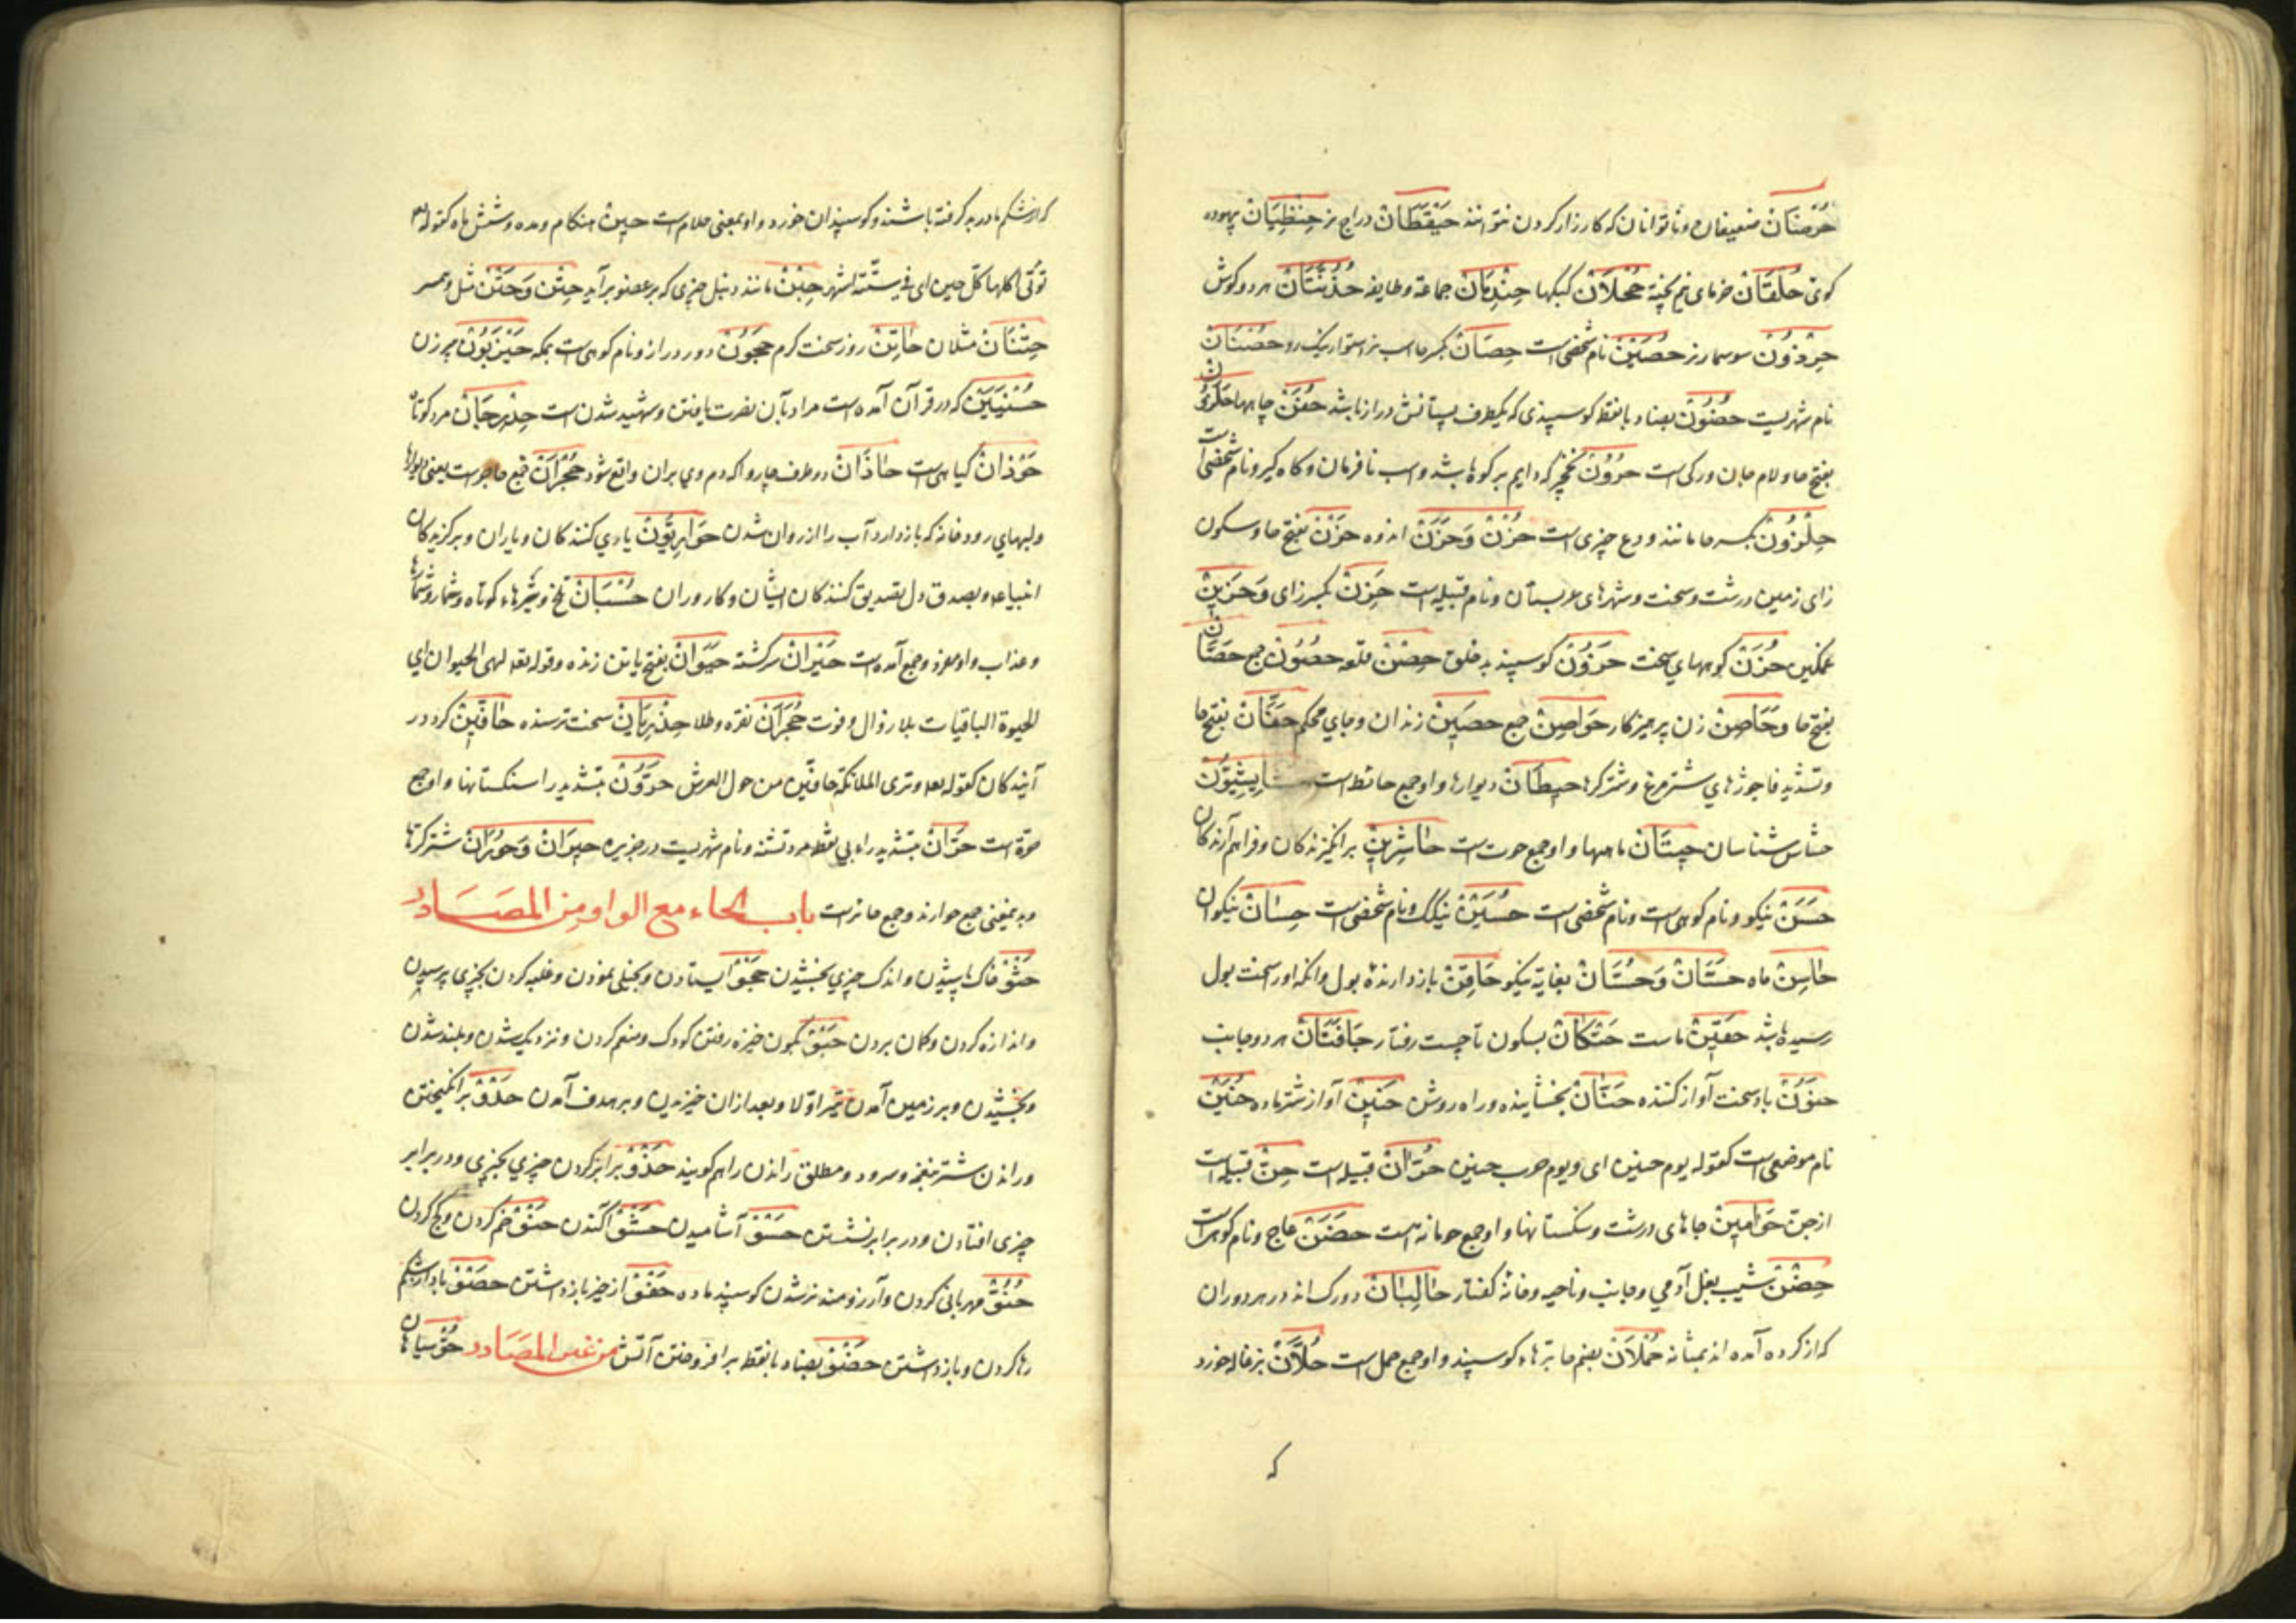 حَرَضَانْ ضعیفان و ناتوانان که کارزار کردن نتوانند حَیْقَطَانْ دراج نر حِنْظِیَانْ بیهوده
کوی حُلْقَانْ خرمای نیم پخته حُجْلَانْ کبکها حِنْدِمَانْ جماعة و طایفه حُذُنَّتَانْ هر دو کوش
حِرْذَوْنْ سوسمار نر حُصَیْنْ نام شخصی است حِصَانْ بکسر حا اسب نر استوار نیک رو حِضْنَانْ
نام شهریست حَضُوْنْ بضاد بانقطه کوسپندی که یکطرف پستانش دراز باشد حُفَنْ چاهها حَلَزُوْنْ
بفتح حا و لام جان ورکی است حَرُوْنْ که دایم بر کوه باشد و اسب نافرمان و کاه کیر و نام شخصی است
حِلَّوْنْ بکسر حا مانند چیزی است حُزْنْ وَحَزَنْ اندوه حَزْنْ بفتح حا و سکون
زای زمین درشت و سخت و شهرهای عربستان و نام قبیله است حَزِنْ بکسر زای وَحَزِیْنْ
غمکین حُزَنْ کوههای سخت حَزُوْنْ کوسپند بد خلق حِصْنْ قلعه حُصُوْنْ جمع حَصَانْ
بفتح حا وحَاصِنْ زن پرهیزکار حَوَاصِنْ جمع حَصِیْنْ زندان و جای محکم حَفَّانْ بفتح حا
و تشدید فا جوژهای شترمرغ و شترکرها حِیْطَانْ دیوارها و او جمع حائط است
شناسان حِیْتَانْ ماهیها و او جمع حوت است حَاشِرِیْنْ برانکیزندکان و فراهم آرندکان
حَسَنْ نیکو و نام کوهی است و نام شخصی است حُسَیْنْ نیکک و نام شخصی است حِسَانْ نیکوان
حَاسِنْ ماه حَسَّانْ وَحُسَّانْ بغایة نیکو حَاقِنْ بازدارندهٔ بول و انکه اورا سخت بول
رسیده باشد حَقِیْنْ ماست حَتْکَانْ بسکون تا چست رفتار حَافَتَانْ هر دو جانب
حَنُوْنْ باد سخت آواز کننده حَنَّانْ بخشاینده و راه روشن حَنِیْنْ آواز شتر ماده حُنَیْنْ
نام موضعی است کقوله یوم حنین ای و یوم حرب حنین حُرَّانْ قبیله است حِنّ قبیله است
از جن حَوَامِیْنْ جاهای درشت و سنکستانها و او جمع حومانه است حَضَنْ عاج و نام کوهی است
حِضْنْ شیب بغل آدمی و جانب و ناحیه و خانهٔ کفتار حَالِبَانْ دو رک اند در هر دو ران
که از کرده آمده اند بمثانه حُمْلَانْ بضم حا برّهاء کوسپند و او جمع حمل است حُلَّانْ بزغاله خورد
که
که از شکم مادر بر کرفته باشند و کوسپندان خورد و او بمعنی حلام است حین هنکام و مده و شش ماه کقوله تع
تؤتی اکلها کل حین ای فی ستّة اشهر حِبْنْ مانند دنبل چیزی که بر عضو برآید حِتْن وَحَتْنْ مثل و همسر
حِتْنَانْ مثلان حَاتِنْ روز سخت کرم حَجُوْنْ دور دراز و نام کوهی است بمکه حَیْزَبُوْنْ پیر زن
حُسْنَیَیْنْ که در قرآن آمده است مراد بآن نصرت یافتن و شهید شدن است حِدْرِجَانْ مرد کوتاه
حَوْذَانْ کیاهی است حَاذَانْ دو طرف چاروا که دم وی بران واقع شود حُجْرَانْ جمع حاجر است یعنی دیوارها
ولبهای رودخانه که باز دارد آب را از روان شدن حَوَارِیُّوْنْ یاری کنندکان و یاران و برکزیدکان
انبیا علم و بصدق دل تصدیق کنندکان ایشان و کاروران حُسْبَانْ ملخ و تیرهاء کوتاه و شمار و شمارها
و عذاب و او مفرد و جمع آمده است حَیْرَانْ سرکشته حَیَوَانْ بفتح یا تن زنده و قوله تع لهی الحیوان ای
الحیوة الباقیات بلا زوال و فوت حَجَرَانْ نقره و طلا حِذْرِیَانْ سخت ترسنده حَافِّیْنْ کرد در
آیندکان کقوله تع و تری الملائکة حافّین من حول العرش حَرُّوْنْ بتشدید را سنکستانها و او جمع
حرّة است حَرَّانْ بتشدید راء بی نقطه مرد تشنه و نام شهریست در جزیره حِیْرَانْ وَحُوْرَانْ شترکرّها
و بدین معنی جمع حوارند و جمع حائرست باب الحاء مع الواو من المصَادر
حَثْوْ خاک پاشیدن و اندک چیزی بخشیدن حَجْوْ ایستادن و بخیلی نمودن و غلبه کردن بچیزی پرسیدن
و اندازه کردن و کمان بردن حَبْوْ بکون خیزه رفتن کودک و منع کردن و نزدیک شدن و بلند شدن
و بخشیدن و بر زمین آمدن تیر اوّلا و بعد ازان خیزیدن و بر هدف آمدن حَدْوْ برانکیختن
و راندن شتر بنغمه و سرود و مطلق راندن را هم کویند حَذْوْ برابر کردن چیزی بچیزی و در برابر
چیزی افتادن و در برابر نشستن حَسْوْ آشامیدن حَشْوْ آکندن حَنْوْ خم کردن و کج کردن
حُنُوّ مهربانی کردن و آرزومند نر شدن کوسپند ماده حَفْوْ از خیر باز داشتن حَصْوْ باد از شکم
رها کردن و باز داشتن حَضْوْ بضاد بانقطه برافروختن آتش من غیر المصَادر حُوّ سیاهان